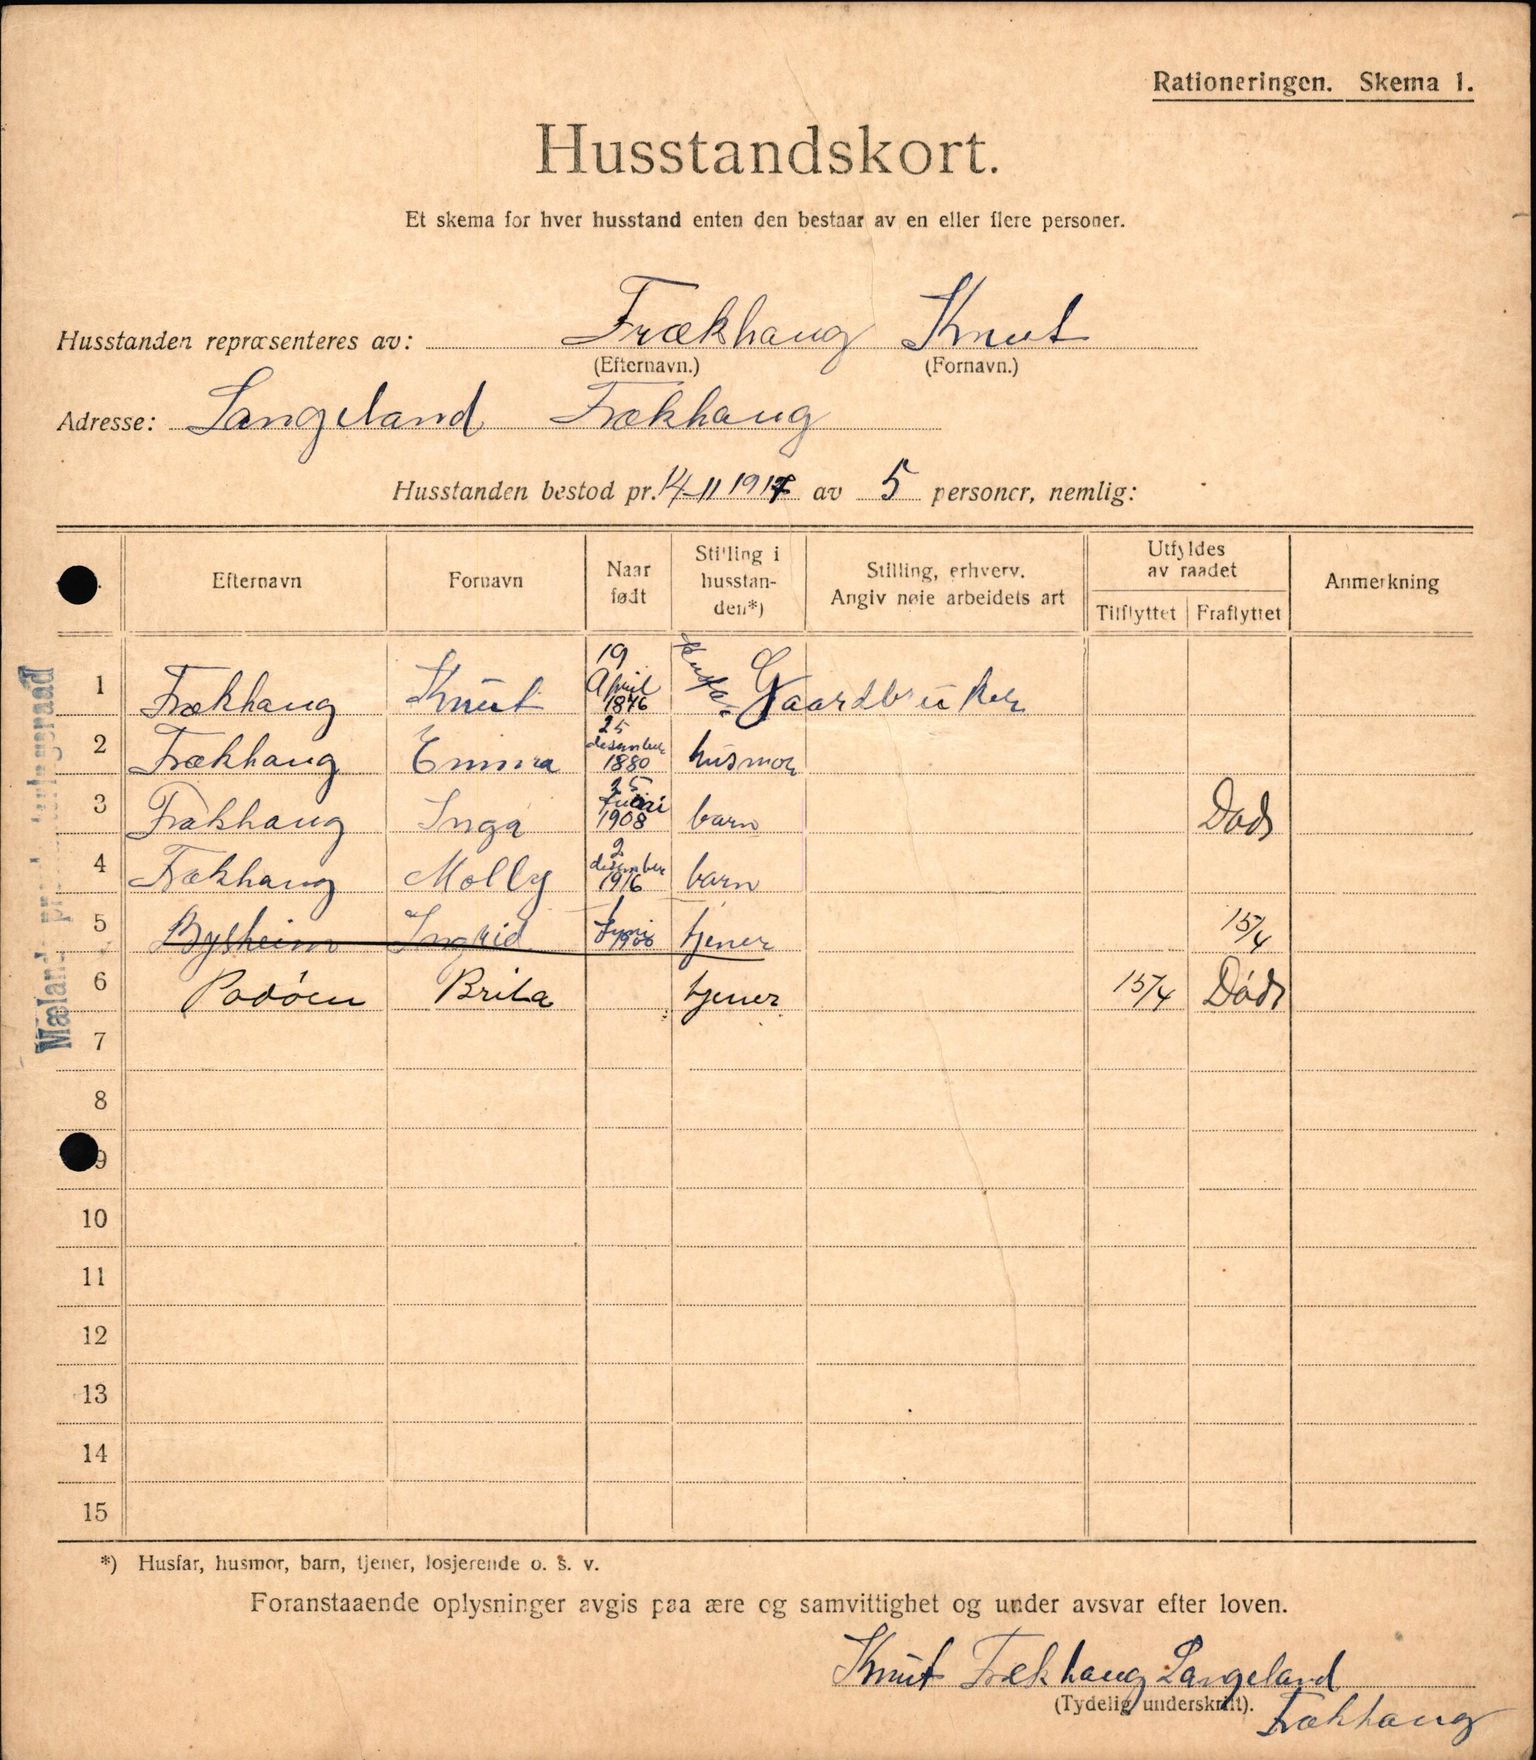 Rationeringen. Skema 1.
Husstandskort.
Et skema for hver husstand enten den bestaar av en eller flere personer.
Husstanden repræsenteres av: Frækhaug Knut
(Efternavn.) (Fornavn.)
Adresse: Langeland Frækhaug
Husstanden bestod pr. 14-11 1917 av 5 personer, nemlig:
Efternavn Fornavn Naar født Stilling i husstan-den*) Stilling, erhverv. Angiv nøie arbeidets art Utfyldes av raadet Tilflyttet Fraflyttet Anmerkning
1 Frækhaug Knut 19 April 1846 Gaardbruker
2 Frækhaug Emma 25 desember 1880 husmor
3 Frækhaug Inga 25 1908 barn Død
4 Frækhaug Molly 2 desember 1916 barn
5 Bysheim Ingrid tjener 15/4
6 Brita tjener 15/4 Død
7
8
9
10
11
12
13
14
15
Mæland
*) Husfar, husmor, barn, tjener, losjerende o. s. v.
Foranstaaende oplysninger avgis paa ære og samvittighet og under avsvar efter loven.
Knut Frækhaug Langeland
(Tydelig underskrift).
Frækhaug